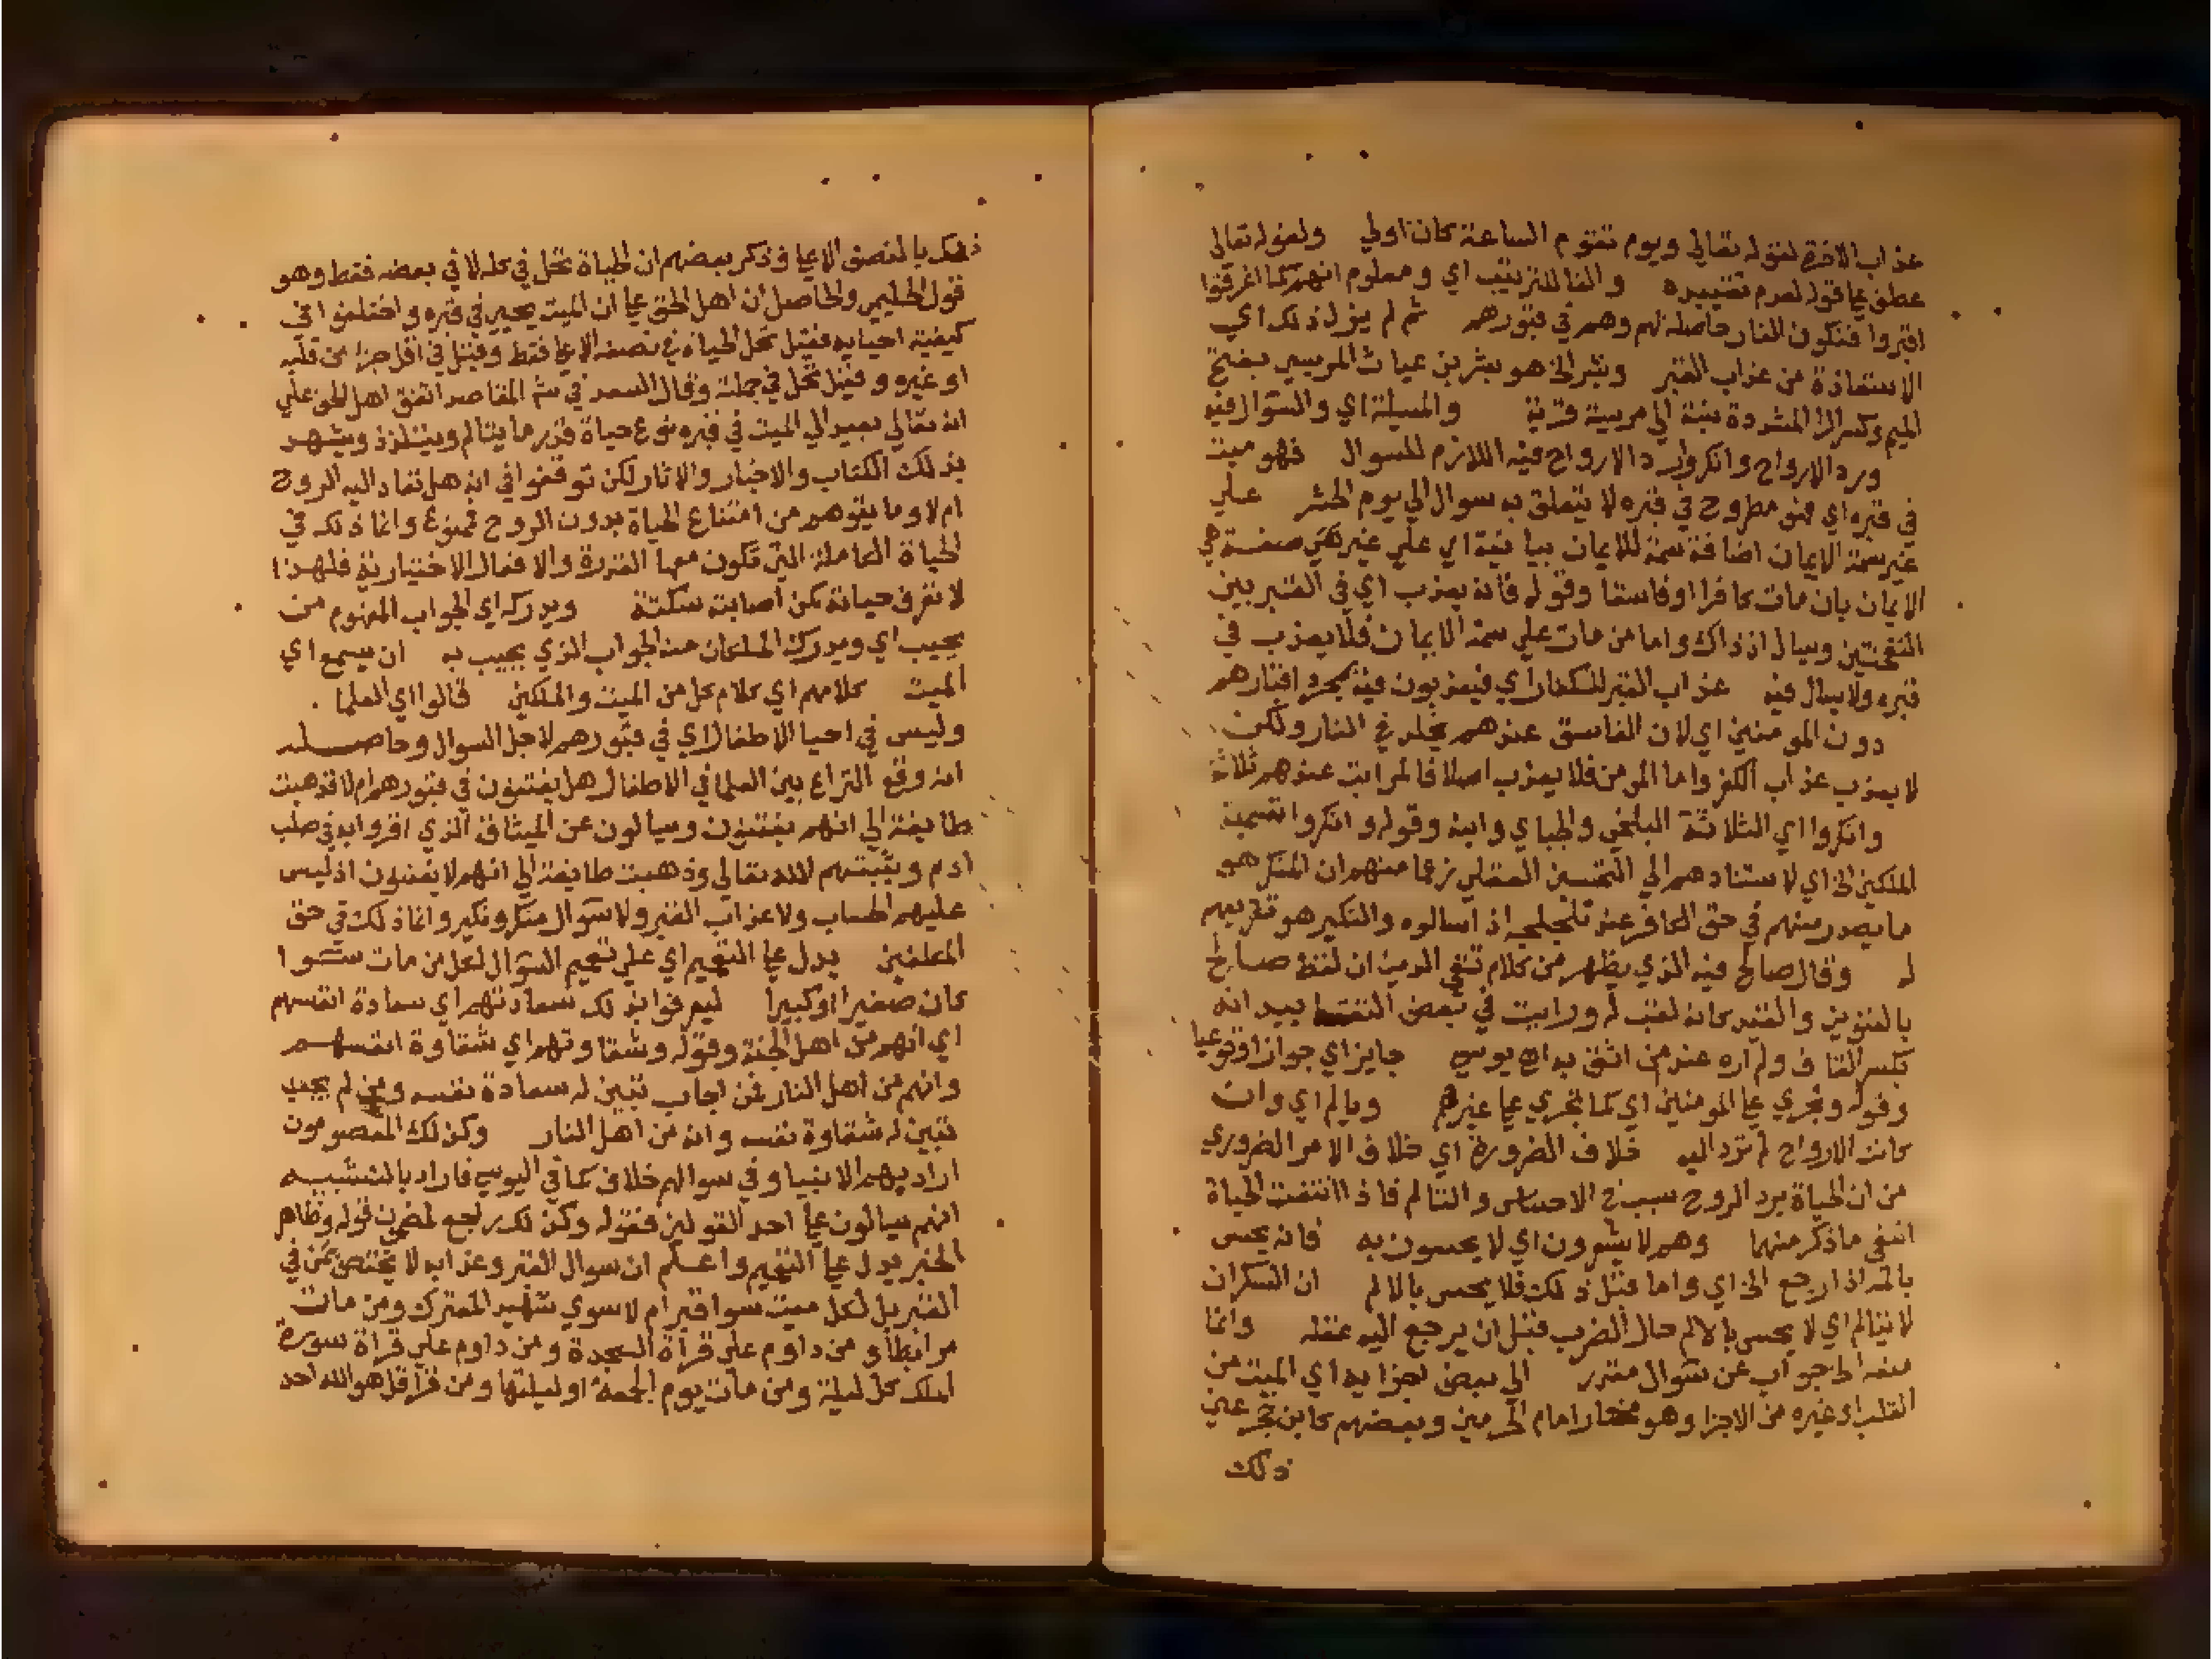 عذاب الاخرة لقوله تعالى ويوم تقوم الساعة كان اولي ولقوله تعالي
عطف علي قوله لعدم تقييده والفا للترتيب اي ومعلوم انهم كما اغرقوا
اقبروا فتكون النار حاصلة لهم وهم في قبورهم ثم لم يزل ذلك اي
الاستعاذة من عذاب القبر وبشر الخ هو بشر بن عياث المريسي بفتح
الميم وكسر الرا المشددة نسبة الي مريسة قرية والمسيلة اي والسوال فيه
ورد الارواح وانكروا رد الارواح فيه اللازم للسوال فهو ميت
في قبره اي فهو مطروح في قبره لا يتعلق به سوال الي يوم الحشر علي
غير سمة الايمان اضافة سمة للايمان بيانية اي علي غير صفة هي
الايمان بان مات كافرا او فاسقا وقوله فانه يعذب اي في القبر بين
النفختين ويسال اذ ذاك واما من مات علي سمة الايمان فلا يعذب في
قبره ولا يسال فيه عذاب القبر للكفار اي فيعذبون فيه بمجرد اقبارهم
دون المومنين اي لان الفاسق عندهم يخلد في النار ولكن
لا يعذب عذاب الكفر واما المومن فلا يعذب اصلا فالمراتب عندهم ثلاثة
وانكروا اي الثلاثة البلخي والجباي وابنه وقوله وانكروا تسمية
الملكين الخ اي لاستنادهم الي التحسين العقلي زعما منهم ان المنكر هو
ما يصدر منهم في حق الكافر عند تلجلجه اذا سالوه والنكير هو تقريعهم
له وقال صالح فيه الذي يظهر من كلام تقي الدين ان لفظ صالح
بالتنوين والقيد كانه لقب له ورايت في بعض بيد انه
بكسر القاف ولم اره عند من اثق به اه يوسي جايز اي جوازا وقوعيا
وقوله وتجري علي المومنين اي كما تجري علي غيرهم ويالم اي وان
كانت الارواح لم ترد اليه خلاف الضرورة اي خلاف الامر الضروري
من ان الحياة برد الروح سبب في الاحساس والتالم فاذا انتفت الحياة
انتفي ما ذكر منهما وهم لا يشعرون اي لا يحسون به فانه يحس
بالم اذا رجع الخ اي واما قبل ذلك فلا يحس بالالم ان السكران
لا يتالم اي لا يحس بالالم حال الضرب قبل ان يرجع اليه عقله وانما
منعه الخ جواب عن سوال مقدر الي بعض اجزايه اي الميت من
القلب او غيره من الاجزا وهو مختار امام الحرمين وبعضهم كابن حجر علي
ذلك
ذلك بالنصف الاعلي وذكر بعضهم ان الحياة تحل في كله لا في بعضه فقط وهو
قول الحليمي والحاصل ان اهل الحق علي ان الميت يحيي في قبره واختلفوا في
كيفية احيايه فقيل تحل الحياة في نصفه الاعلي فقط وقيل في اقل جزء من قلبه
او غيره وقيل تحل في جملة وقال السعد في شم المقاصد اتفق اهل الحق علي
انه تعالي يعيد الي الميت في قبره نوع حياة قدر ما يتالم ويتلذذ ويشهد
بذلك الكتاب والاخبار والاثار لكن توقفوا في انه هل تعاد اليه الروح
ام لا وما يتوهم من امتناع الحياة بدون الروح ممنوع وانما ذلك في
الحياة الكاملة التي تكون معها القدرة والافعال الاختيارية فلهذا
لا تعرف حياته كمن اصابته سكتة ويدركه اي الجواب المفهوم من
يجيب اي ويدرك الملكان منه الجواب الذي يجيب به ان يسمع اي
الميت كلامهم اي كلام كل من الميت والملكين قالوا اي العلما
وليس في احيا الاطفال اي في قبورهم لاجل السوال وحاصله
انه وقع النزاع بين العلما في الاطفال هل يفتنون في قبورهم ام لا فذهبت
طايفة الي انهم يفتنون ويسالون عن الميثاق الذي اقروا به في صلب
ادم ويثبتهم الله تعالي وذهبت طايفة الي انهم لا يفتنون اذ ليس
عليهم الحساب ولا عذاب القبر ولا سوال منكر ونكير وانما ذلك في حق
المكلفين يدل علي التعميم اي علي تعميم السوال لكل من مات سوا
كان صغيرا او كبيرا ليعرفوا بذلك سعادتهم اي سعادة انفسهم
اي انهم من اهل الجنة وقوله وشقاوتهم اي شقاوة انفسهم
وانهم من اهل النار فمن اجاب تبين له سعادة نفسه ومن لم يجب
تبين له شقاوة نفسه وانه من اهل النار وكذلك المعصومون
اراد بهم الانبيا وفي سوالهم خلاف كما في اليوسي فاراد بالتشبيه
انهم يسالون علي احد القولين فقوله وكذلك رجع لمضمون قوله وظاهر
الخبر يدل علي التعميم واعلم ان سوال القبر وعذابه لا يختص بمن في
القبر بل لكل ميت سوا قبر ام لا سوي شهيد المعترك ومن مات
مرابطا و من داوم علي قراة السجدة ومن داوم علي قراة سورة
الملك كل ليلة ومن مات يوم الجمعة او ليلتها ومن قرا قل هو الله احد